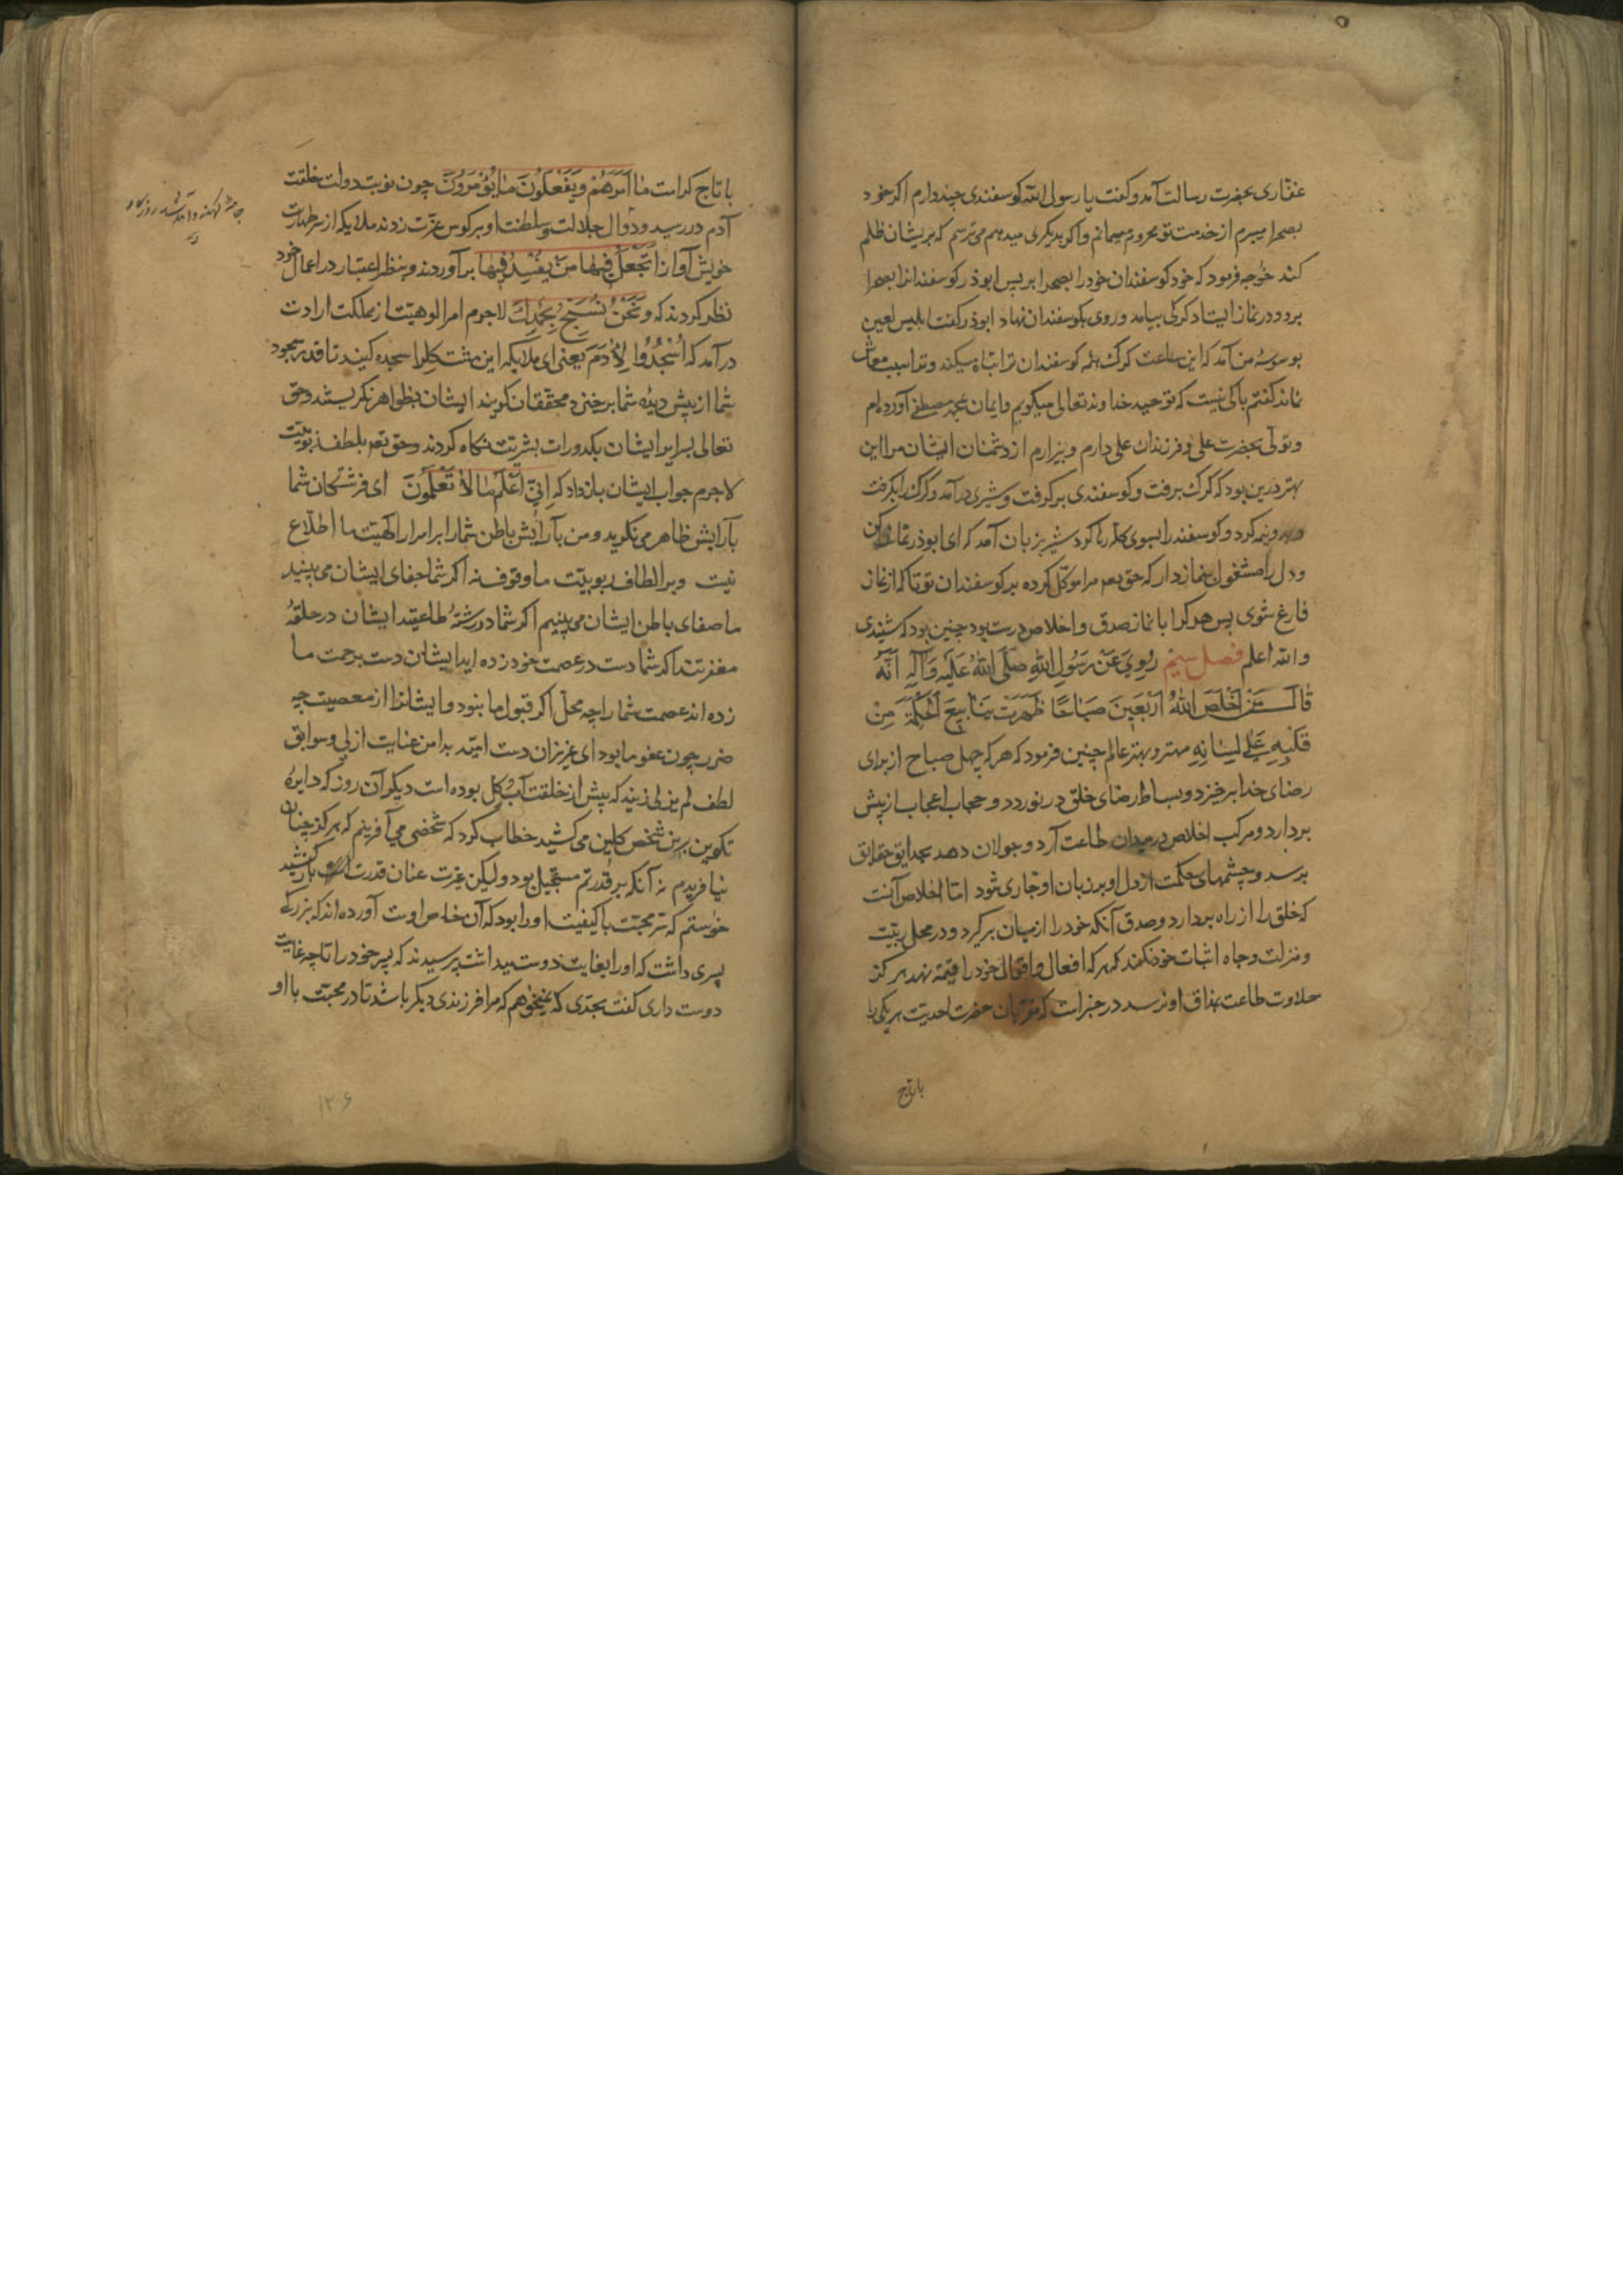 غفاری بحضرت رسالت آمد و کفت یا رسول الله کوسفندی چند دارم اکر خود
بصحرا میبرم از خدمت تو محروم میمانم و اکر بدیکری میدهم می ترسم که بریشان ظلم
کند خواجه فرمود که خود کوسفندان خود را بصحرا بر پس ابوذر کوسفندانرا بصحرا
برد و در نماز ایستاد کرکی بیامد و روی بکوسفندان نهاد ابوذر کفت ابلیس لعین
بوسوسهٔ من آمد که این ساعت کرک همه کوسفندان ترا تباه میکند و ترا سبب معاش
نماند کفتم باکی نیست که توحید خداوند تعالی میکویم و ایمان بمحمد مصطفی آورده‌ام
و تولی بحضرت علی و فرزندان علی دارم و بیزارم از دشمنان ایشان مرا این
بهتر درین بود که کرک برفت و کوسفندی بر کرفت و شیری در آمد و کرک را بکرفت
و بدو نیم کرد و کوسفند را بسوی کله رها کرد شیر بزبان آمد که ای ابوذر نماز کن
و دل را مشغول نماز دار که حق تعم مرا موکل کرده بر کوسفندان تو تا که از نماز
فارغ شوی پس هر کرا با نماز صدق و اخلاص درست بود چنین بود که شنیدی
والله اعلم فصل سیم رُوِیَ عَنْ رَسُولِ اللهِ صَلَّی اللهُ عَلَیْهِ وَآلِهِ اَنَّهُ
قَالَ مَنْ اَخْلَصَ اللهُ اَرْبَعِینَ صَبَاحًا ظَهَرَتْ یَنَابِیعَ الْحِکْمَةِ مِنْ
قَلْبِهِ عَلَی لِسَانِهِ مهتر و بهتر عالم چنین فرمود که هر که چهل صباح از برای
رضای خدا بر خیزد و بساط رضای خلق در نوردد و حجاب اعجاب از پیش
بردارد و مرکب اخلاص در میدان طاعت آرد و جولان دهد بحدایق حقایق
برسد و چشمهای حکمت از دل او بر زبان او جاری شود اما اخلاص آنست
که خلق را از راه بردارد و صدق آنکه خود را از میان بر کیرد و در محل ربیت
و منزلت و جاه اثبات خود نکند که هر که افعال و اقوال خود را قیمة نهد هرکز
حلاوت طاعت بمذاق او نرسد در خبر است که مقربان حضرت احدیت هر یکی را
با تاج
با تاج کرامت مَا اَمَرَهُمْ وَیَفْعَلُونَ مَا یُؤْمَرُونَ چون نوبت دولت خلقت
آدم در رسید و دوال جلالت و سلطنت او بر کوس عزت زدند ملایکه از سر طهارت
خویش آواز اَتَجْعَلُ فِیهَا مَنْ یُفْسِدُ فِیهَا بر آوردند و بنظر اعتبار در اعمال خود
نظر کردند که وَنَحْنُ نُسَبِّحُ بِحَمْدِکَ لاجرم امر الوهیت از مملکت ارادت
در آمد که اُسْجُدُوا لِاٰدَمَ یعنی ای ملایکه این مشت کل را سجده کنید تا قدر سجود
شما از پیش دیدهٔ شما بر خیزد محققان کویند ایشان بظواهر نکریستند و حق
تعالی بسرایر ایشان بکدورات بشریت نکاه کردند و حق تعم بلطف ربوبیت
لاجرم جواب ایشان باز داد که اِنِّی اَعْلَمُ مَا لَا تَعْلَمُونَ ای فرشتکان شما
بآرایش ظاهر می نکرید و من بآرایش باطن شما را بر اسرار الهیت ما اطلاع
نیست و بر الطاف ربوبیت ما وقوف نه اکر شما جفای ایشان می بینید
ما صفای باطن ایشان می بینیم اکر شما در رشتهٔ طاعتید ایشان در حلقهٔ
مغفرتند اکر شما دست در عصمت خود زده اید ایشان دست برحمت ما
زده اند عصمت شما را چه محل اکر قبول ما نبود و ایشانرا از معصیت چه
ضرر چون عفو ما بود ای عزیزان دست امید بدامن عنایت ازلی و سوابق
لطف لم یزلی زنید که پیش از خلقت آب و کل بوده است دیکر آن روز که دایرهٔ
تکوین برین شخص کلین می کشید خطاب کرد که شخصی می آفرینم که هرکز چنان
نیافریدم نه آنکه بر قدرتم مستحیل بود ولیکن غیرت عنان قدرت باز کشید
خواستم که سر محبت با کیفیت او را بود که آن خاص اوست آورده اند که بزرکی
پسری داشت که او را بغایت دوست میداشت پرسیدند که پسر خود را تا چه غایت
دوست داری کفت بحدی که نمیخواهم که مرا فرزندی دیکر باشد تا در محبت با او
۱۲۶